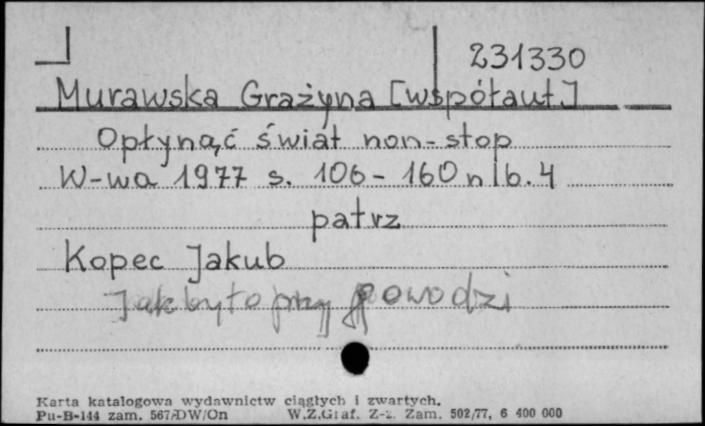 231330
Murawska Grażyna [współaut.]
Opłynąć świat non-stop
W-wa 1977 s. 106-160 nlb. 4
patrz
Kopec Jakub
Jak było przy powodzi
Karta katalogowa wydawnictw ciągłych i zwartych.
Pu-B-144 zam. 567/DW/On W.Z.Graf. Z-z. Zam. 502/77, 6 400 000